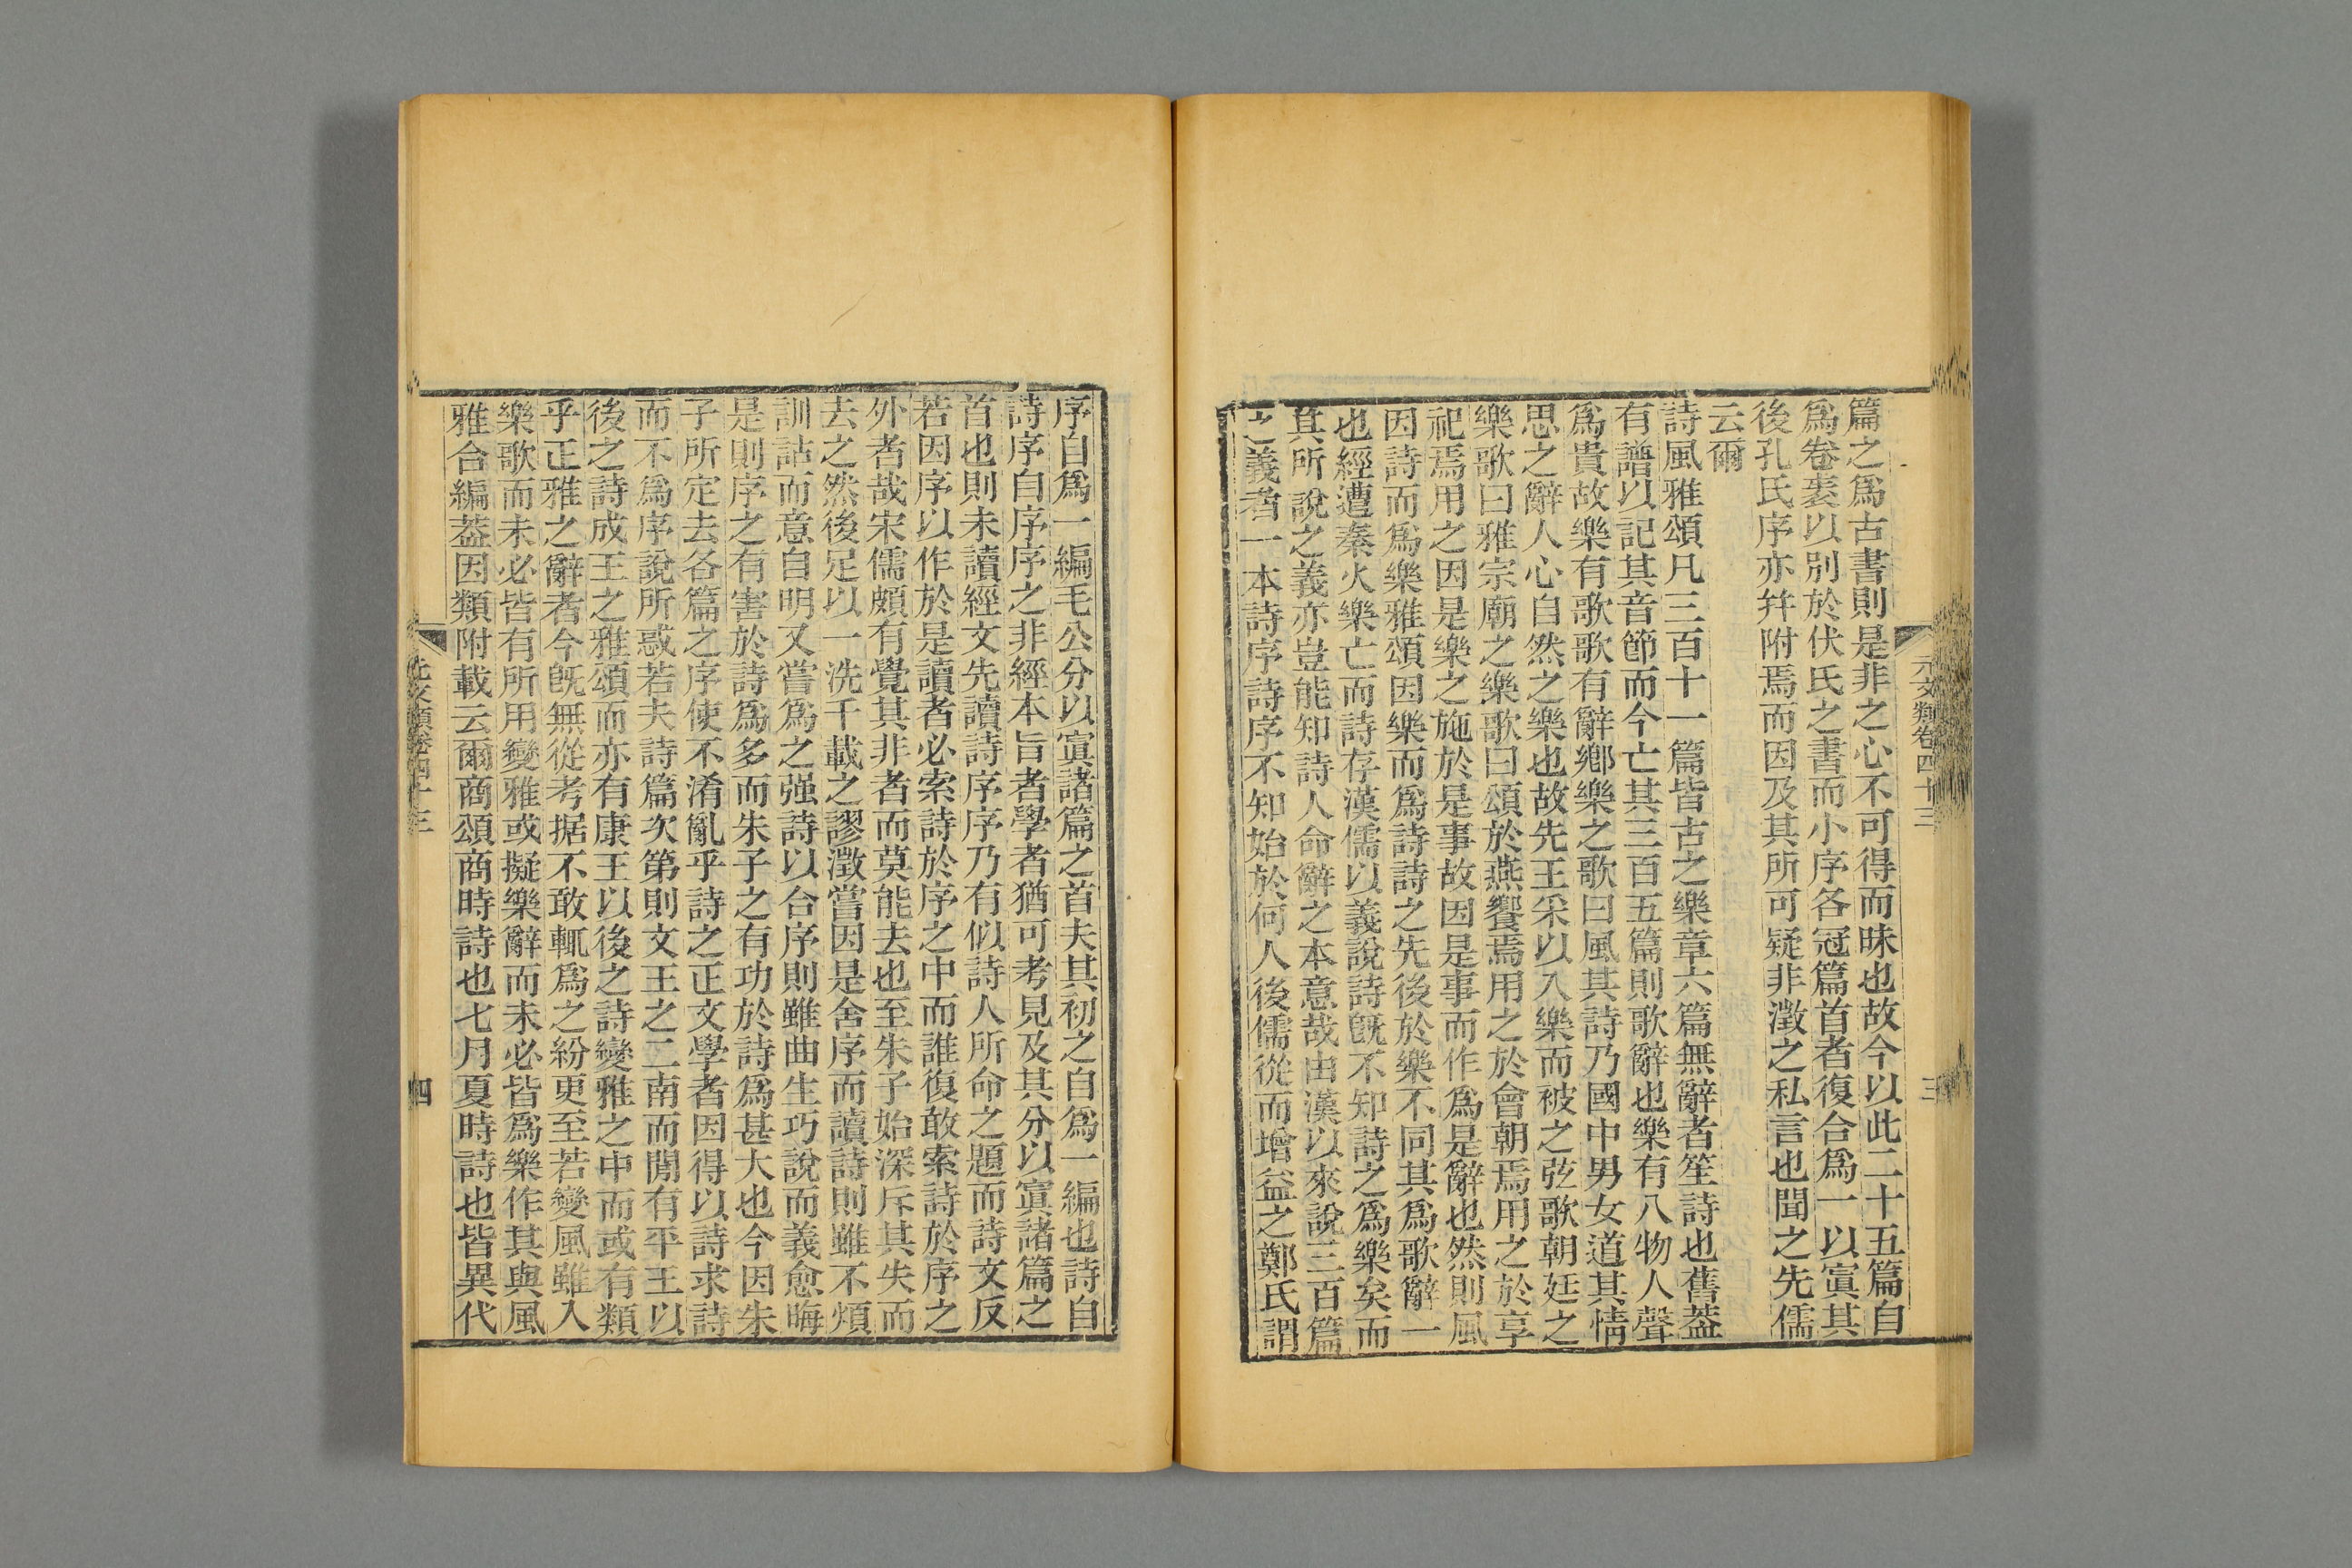 元文類卷四十三
三
篇之爲古書則是非之心不可得而昧也故今以此二十五篇自
爲卷袠以別於伏氏之書而小序各冠篇首者復合爲一以寘其
後孔氏序亦幷附焉而因及其所可疑非澂之私言也聞之先儒
云爾
詩風雅頌凡三百十一篇皆古之樂章六篇無辭者笙詩也舊葢
有譜以記其音節而今亡其三百五篇則歌辭也樂有八物人聲
爲貴故樂有歌歌有辭鄉樂之歌曰風其詩乃國中男女道其情
思之辭人心自然之樂也故先王采以入樂而被之弦歌朝廷之
樂歌曰雅宗廟之樂歌曰頌於燕饗焉用之於會朝焉用之於享
祀焉用之因是樂之施於是事故因是事而作爲是辭也然則風
因詩而爲樂雅頌因樂而爲詩詩之先後於樂不同其爲歌辭一
也經遭秦火樂亡而詩存漢儒以義說詩旣不知詩之爲樂矣而
其所說之義亦豈能知詩人命辭之本意哉由漢以來說三百篇
之義者一本詩序詩序不知始於何人後儒從而增益之鄭氏謂
序自爲一編毛公分以寘諸篇之首夫其初之自爲一編也詩自
詩序自序序之非經本旨者學者猶可考見及其分以寘諸篇之
首也則未讀經文先讀詩序序乃有似詩人所命之題而詩文反
若因序以作於是讀者必索詩於序之中而誰復敢索詩於序之
外者哉宋儒頗有覺其非者而莫能去也至朱子始深斥其失而
去之然後足以一洗千載之謬澂嘗因是舍序而讀詩則雖不煩
訓詁而意自明又嘗爲之强詩以合序則雖曲生巧說而義愈晦
是則序之有害於詩爲多而朱子之有功於詩爲甚大也今因朱
子所定去各篇之序使不淆亂乎詩之正文學者因得以詩求詩
而不爲序說所惑若夫詩篇次第則文王之二南而閒有平王以
後之詩成王之雅頌而亦有康王以後之詩變雅之中而或有類
乎正雅之辭者今旣無從考据不敢輒爲之紛更至若變風雖入
樂歌而未必皆有所用變雅或擬樂辭而未必皆爲樂作其與風
雅合編葢因類附載云爾商頌商時詩也七月夏時詩也皆異代
元文類卷四十三
四